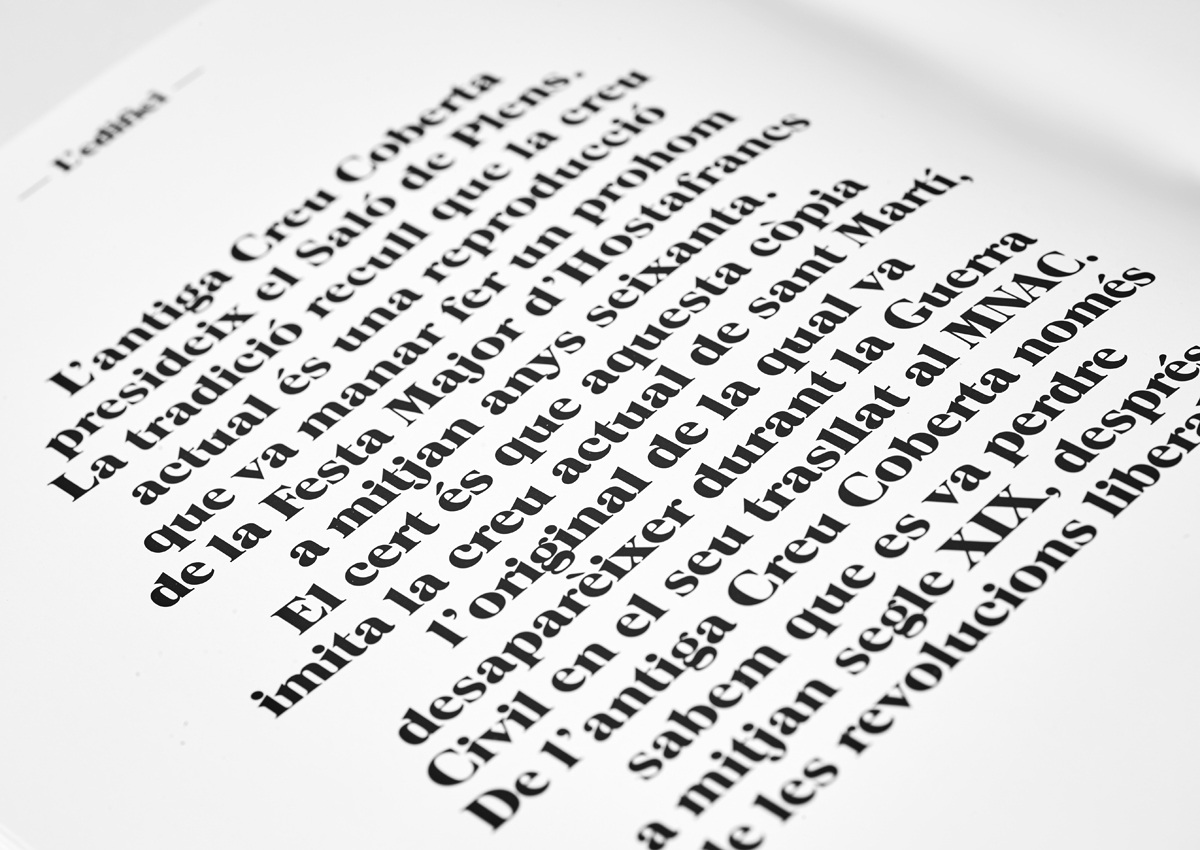 — L'edifici —
L'antiga Creu Coberta
presideix el Saló de Plens.
La tradició recull que la creu
actual és una reproducció
que va manar fer un prohom
de la Festa Major d'Hostafrancs
a mitjan anys seixanta.
El cert és que aquesta còpia
imita la creu actual de sant Martí,
l'original de la qual va
desaparèixer durant la Guerra
Civil en el seu trasllat al MNAC.
De l'antiga Creu Coberta només
sabem que es va perdre
a mitjan segle XIX, després
de les revolucions